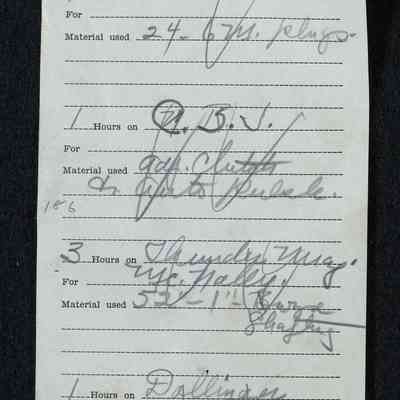 For
Material used 24-6 M. plugs.
1 Hours on N. B. J.
For
Material used adj. clutch
&
186
3 Hours on Thunder Mug.
For Mc. Nally.
Material used 52-1"
Shafting
1 Hours on Dollinger